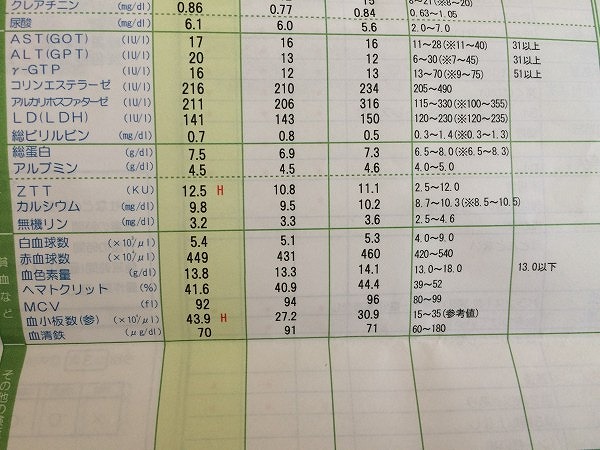 クレアチニン (mg/dl) 0.86 0.77 0.84 0.63~1.05
尿酸 (mg/dl) 6.1 6.0 5.6 2.0~7.0
AST(GOT) (IU/l) 17 16 16 11~28(※11~40) 31以上
ALT(GPT) (IU/l) 20 13 16 6~30(※7~45) 31以上
γ-GTP (IU/l) 16 12 13 13~70(※9~75) 51以上
コリンエステラーゼ (IU/l) 216 210 234 205~490
アルカリホスファターゼ (IU/l) 211 206 316 115~330(※100~355)
LD(LDH) (IU/l) 141 143 150 120~230(※120~235)
総ビリルビン (mg/dl) 0.7 0.8 0.5 0.3~1.4(※0.3~1.3)
総蛋白 (g/dl) 7.5 6.9 7.3 6.5~8.0(※6.5~8.3)
アルブミン (g/dl) 4.5 4.5 4.6 4.0~5.0
ZTT (KU) 12.5 H 10.8 11.1 2.5~12.0
カルシウム (mg/dl) 9.8 9.5 10.2 8.7~10.3(※8.5~10.5)
無機リン (mg/dl) 3.2 3.3 3.6 2.5~4.6
貧血など
白血球数 5.4 5.1 5.3 4.0~9.0
赤血球数 449 431 460 420~540
血色素量 (g/dl) 13.8 13.3 14.1 13.0~18.0 13.0以下
ヘマトクリット (%) 41.6 40.9 44.4 39~52
MCV (fl) 92 94 96 80~99
血小板数(参) 43.9 H 27.2 30.9 15~35(参考値)
血清鉄 (μg/dl) 70 91 71 60~180
その他の